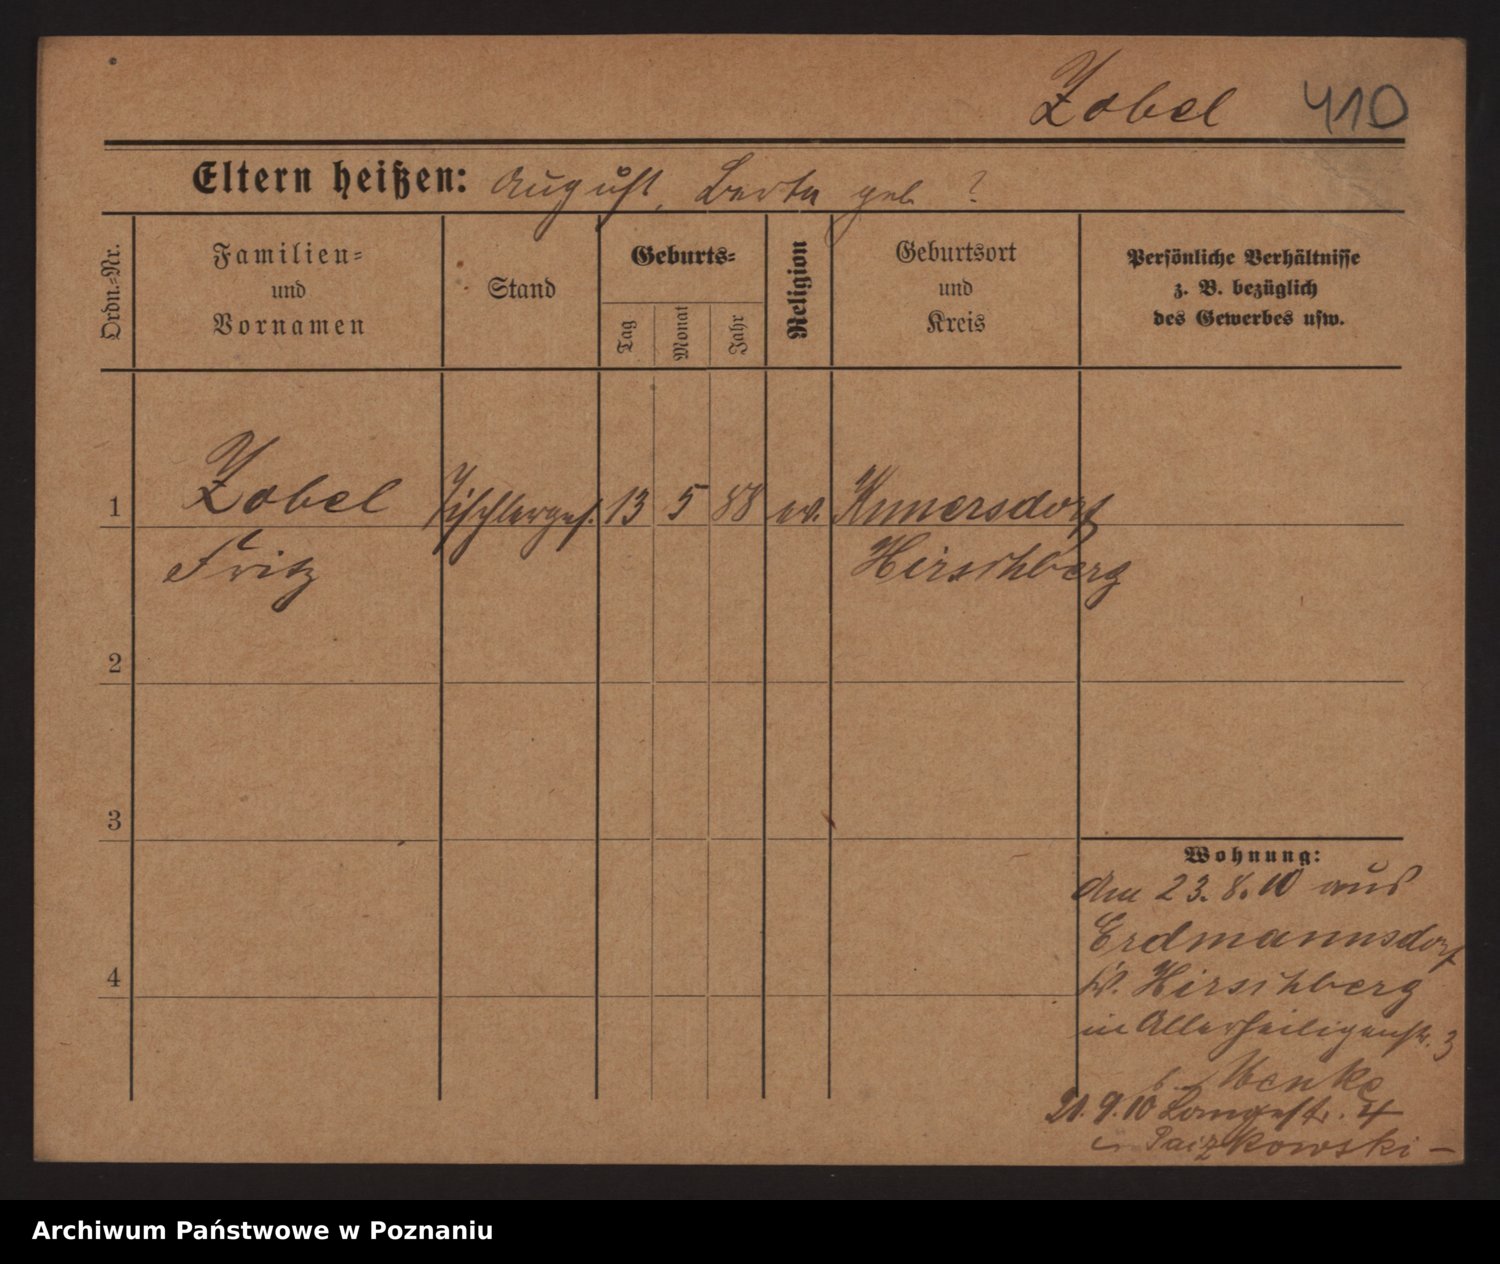 Zobel 410
Eltern heißen: August, Berta geb ?
Ordn.-Nr.
Familien-
und
Vornamen
Stand
Geburts-
Tag
Monat
Jahr
Religion
Geburtsort
und
Kreis
Persönliche Verhältnisse
z. B. bezüglich
des Gewerbes usw.
1 Zobel Tischlerges. 13 5 88 ev. Kunersdorf
Fritz Hirschberg
2
3
Wohnung:
am 23. 8. 10 aus
Erdmannsdorf
Kr. Hirschberg
4
in Allerheiligenstr. 3
b. Menke
21. 9. 10 Langestr. 4
Paizkowski –
Archiwum Państwowe w Poznaniu